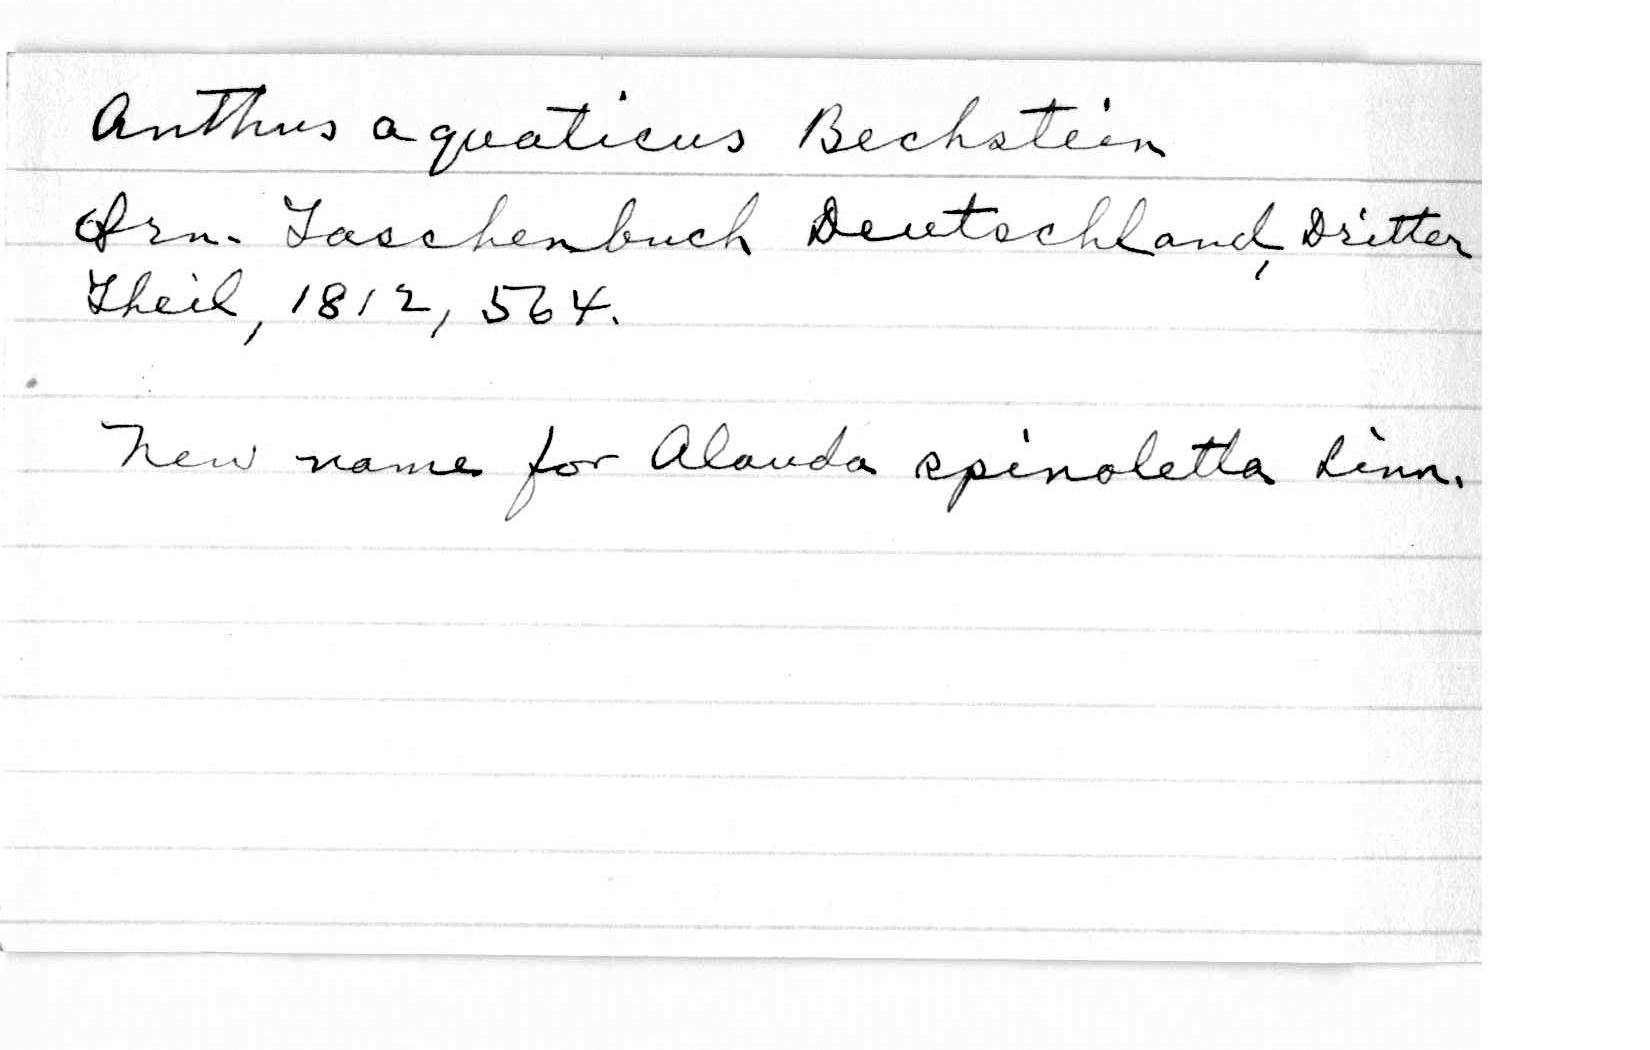 Anthus aquaticus Bechstein
Orn. Taschenbuch Deutschland, Dritter
Theil, 1812, 564.
New name for Alauda spinoletta Linn.